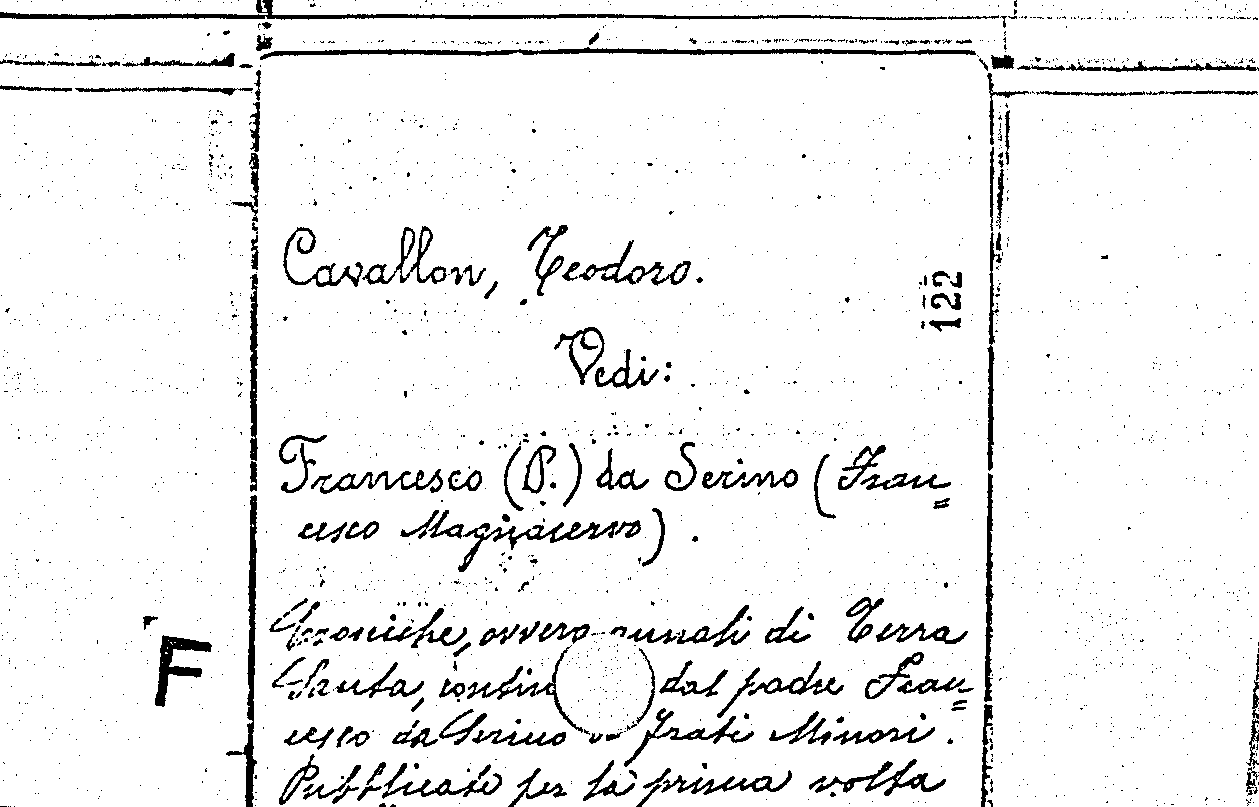 Cavallon, Teodoro.
122
Vedi:
Francesco (P.) da Serino (Fran=
cesco Magnacervo).
Croniche, ovvero annali di Terra
Santa, contin dal padre Fran=
F
cesco da Serino frati Minori.
Pubblicate per la prima volta